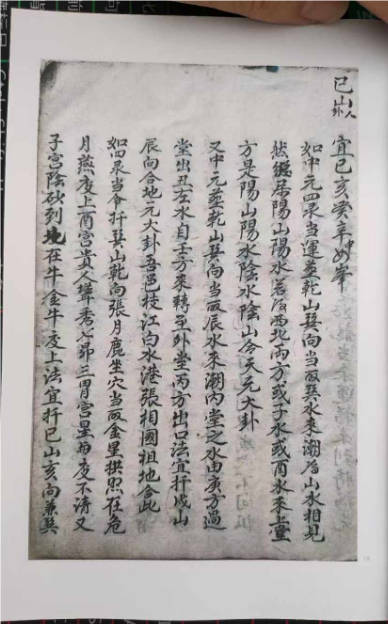 巳山
宜巳亥癸辛峯
如中元四彔当運葢乾山巽向当取巽水來潮為山水相見
然総居陽山陽水若后西北兩方或子水或酉水來上堂
方是陽山陽水陰水陰山合天元大卦
又中元葢乾山巽向当取辰水來潮內堂之水由庚方過
堂出丑左水自壬方來轉至外堂丙方出口法宜扦戌山
辰向合地元大卦吾邑枝江白水港張相國祖地合此
如四彔当令扦巽山乾向張月鹿坐穴当取金星拱照在危
月燕度上酉宮貴人聳秀七昴三胃宮星為度不清又
子宮陰砍列在牛金牛度上法宜扦巳山亥向兼巽